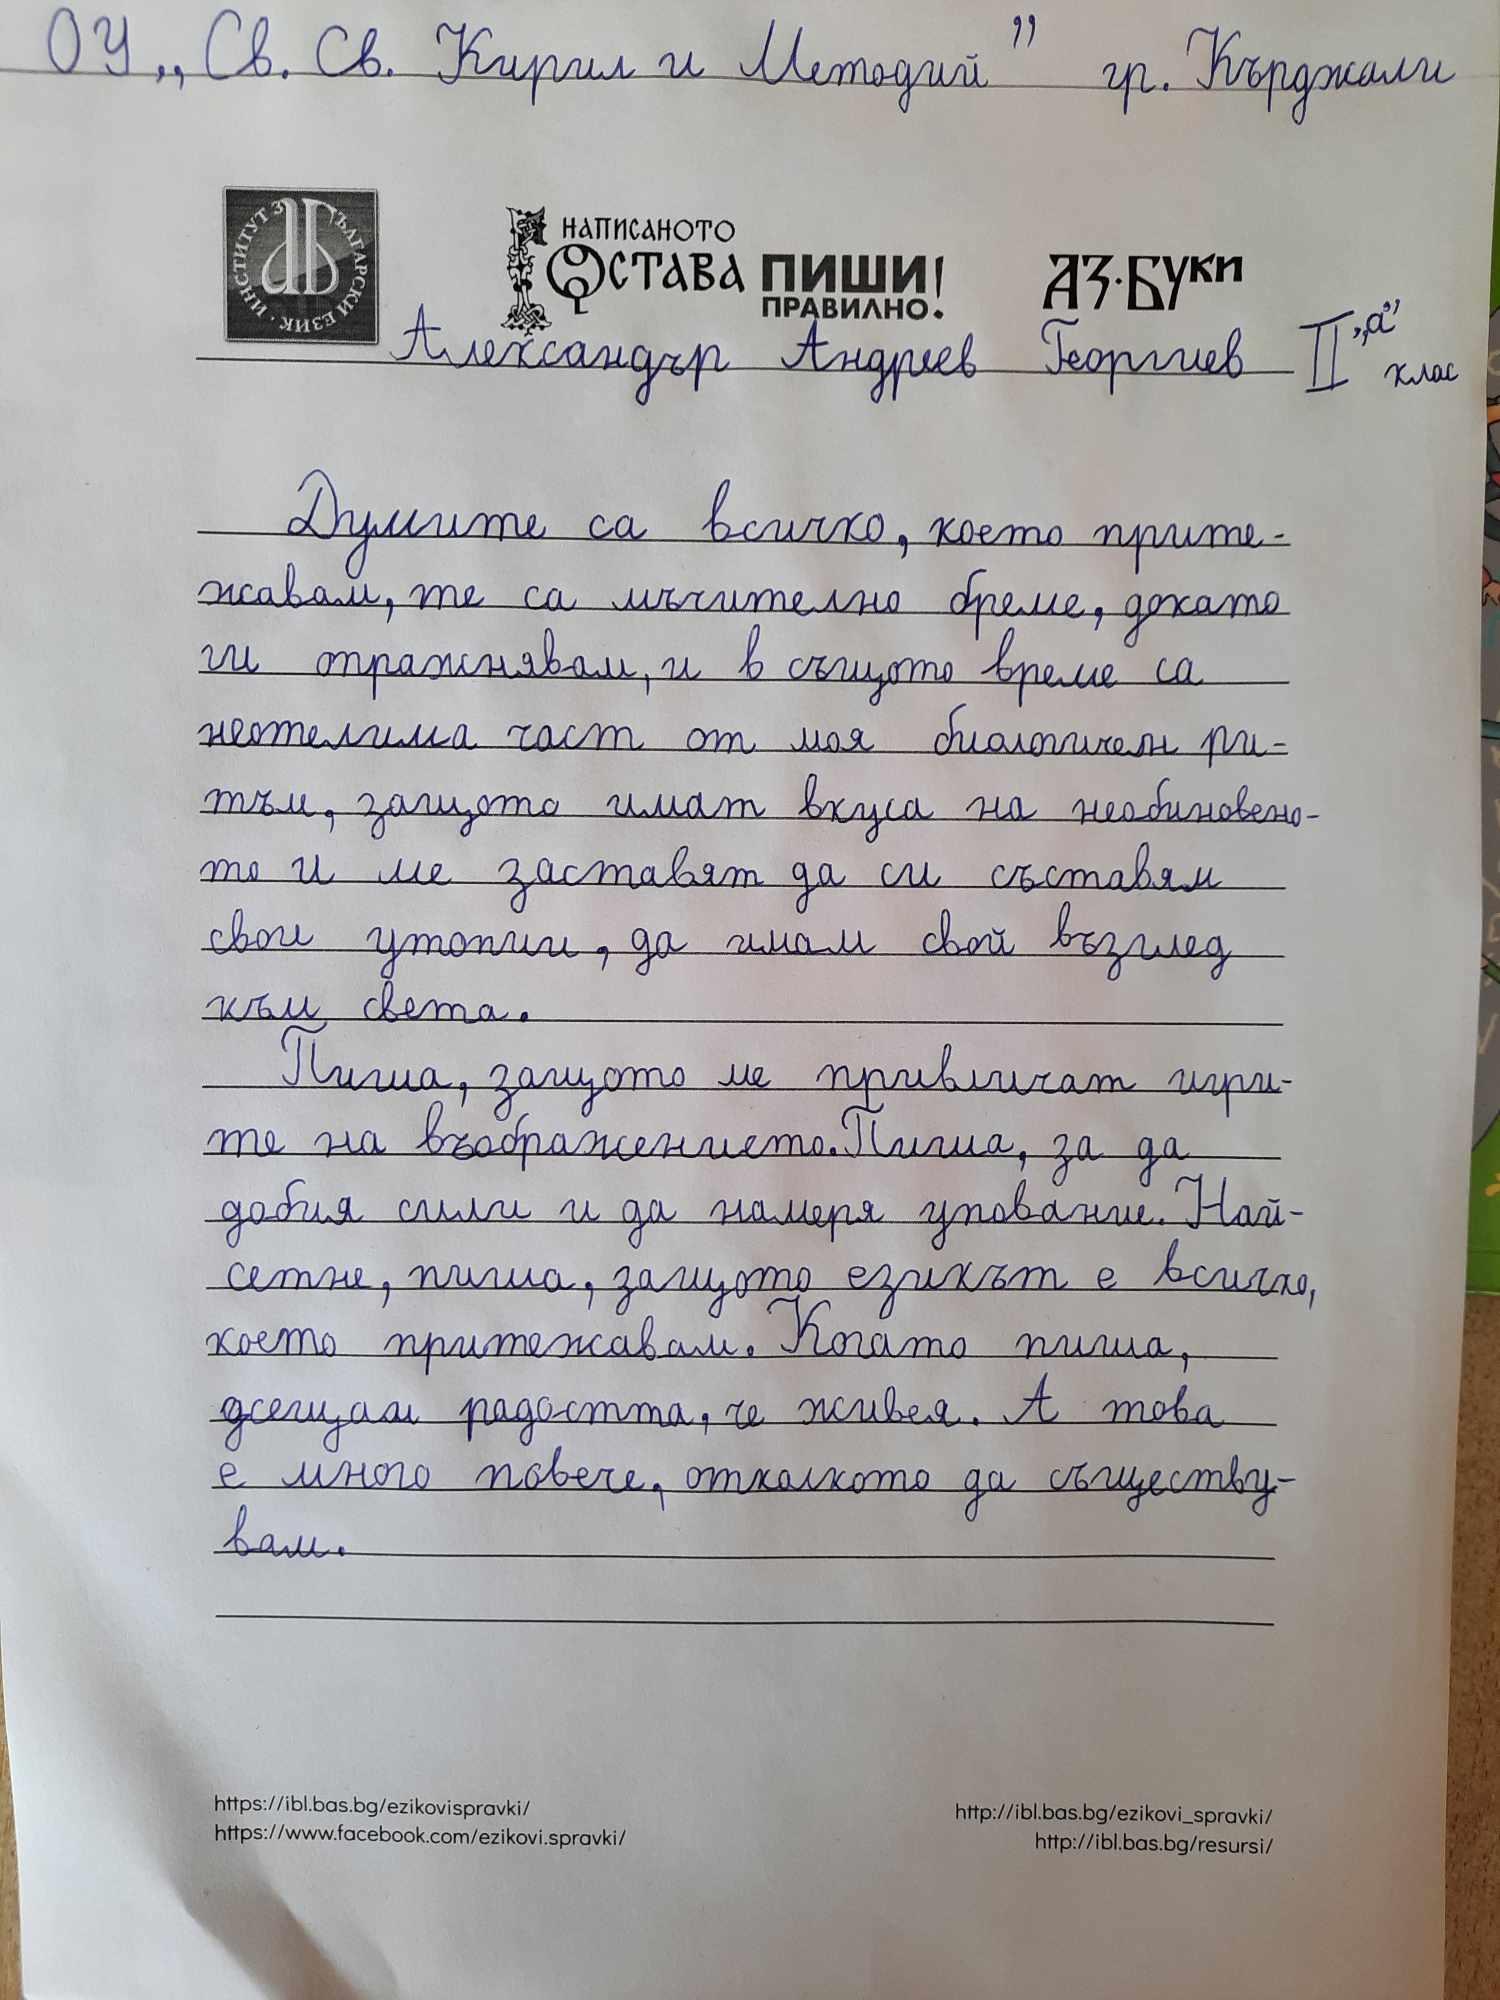 ОУ „Св. Св. Кирил и Методий" гр. Кърджали
ИНСТИТУТ ЗА БЪЛГАРСКИ ЕЗИК
НАПИСАНОТО
ОСТАВА ПИШИ
ПРАВИЛНО!
АЗ·БУКИ
Александър Андреев Георгиев II „а" клас
Думите са всичко, което прите-
жавам, те са мъчително бреме, докато
ги отражнявам, и в същото време са
неотелима част от моя биологичен ри-
тъм, защото имат вкуса на необиновено-
то и ме заставят да си съставям
свои утопии, да имам свой възглед
към света.
Пиша, защото ме привличат игри-
те на въображението. Пиша, за да
добия сили и да намеря упование. Най-
сетне, пиша, защото езикът е всичко,
което притежавам. Когато пиша,
усещам радостта, че живея. А това
е много повече, отколкото да съществу-
вам.
https://ibl.bas.bg/ezikovispravki/
https://www.facebook.com/ezikovi.spravki/
http://ibl.bas.bg/ezikovi_spravki/
http://ibl.bas.bg/resursi/